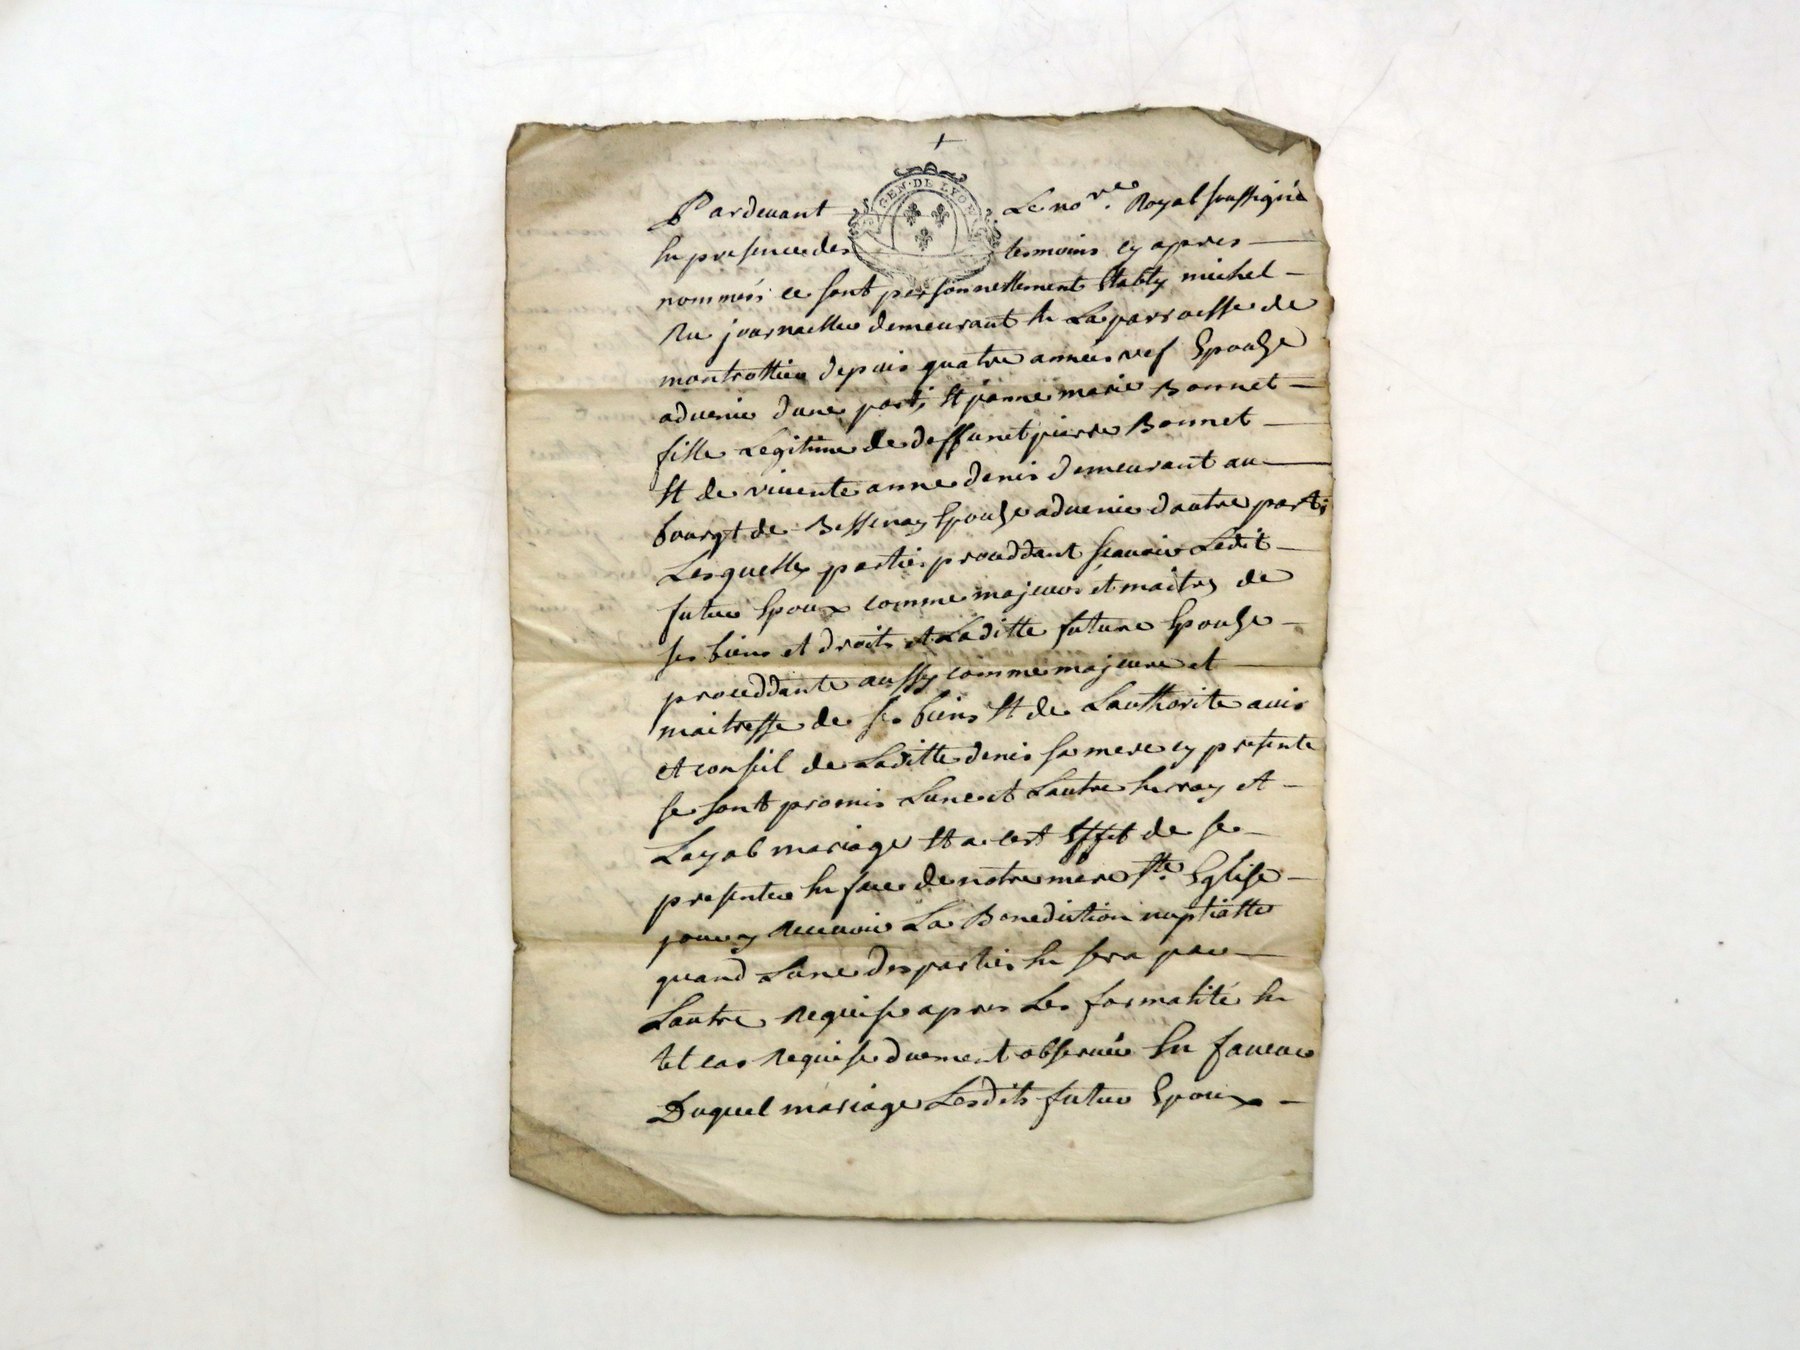 GEN·DE LYON
Pardevant Le no.re Royal soussigné
En presence des temoins cy apres
nommés ce sont personnellement Etably michel
demeurant En La parroisse de
depuis quatre années Epouze
advenir dune part, Et janne marie Bonnet
fille Legitime de deffunct pierre Bonnet
Et de vivente anne denis demeurant au
bourgt de Bessenay Epouze advenir dautre part;
Lesquelles parties proceddant scavoir Ledit
futur Epoux comme majeur et maitre de
ses biens et droits et Laditte future Epouze
proceddante aussy comme majeure et
maitresse de ses biens Et de Lauthorité avis
et conseil de Laditte denis sa mere cy presente
se sont promis Lune et Lautre En vray et
Loyal mariage Et a cest Effet de se
presenter En face de notre mere Ste. Eglise
pour y Recevoir La Benediction nuptialle
quand Lune des parties En sera par
Lautre Requise apres Les formalité En
tel cas Requise duement observée En faveur
Duquel mariage Lesdits futur Epoux